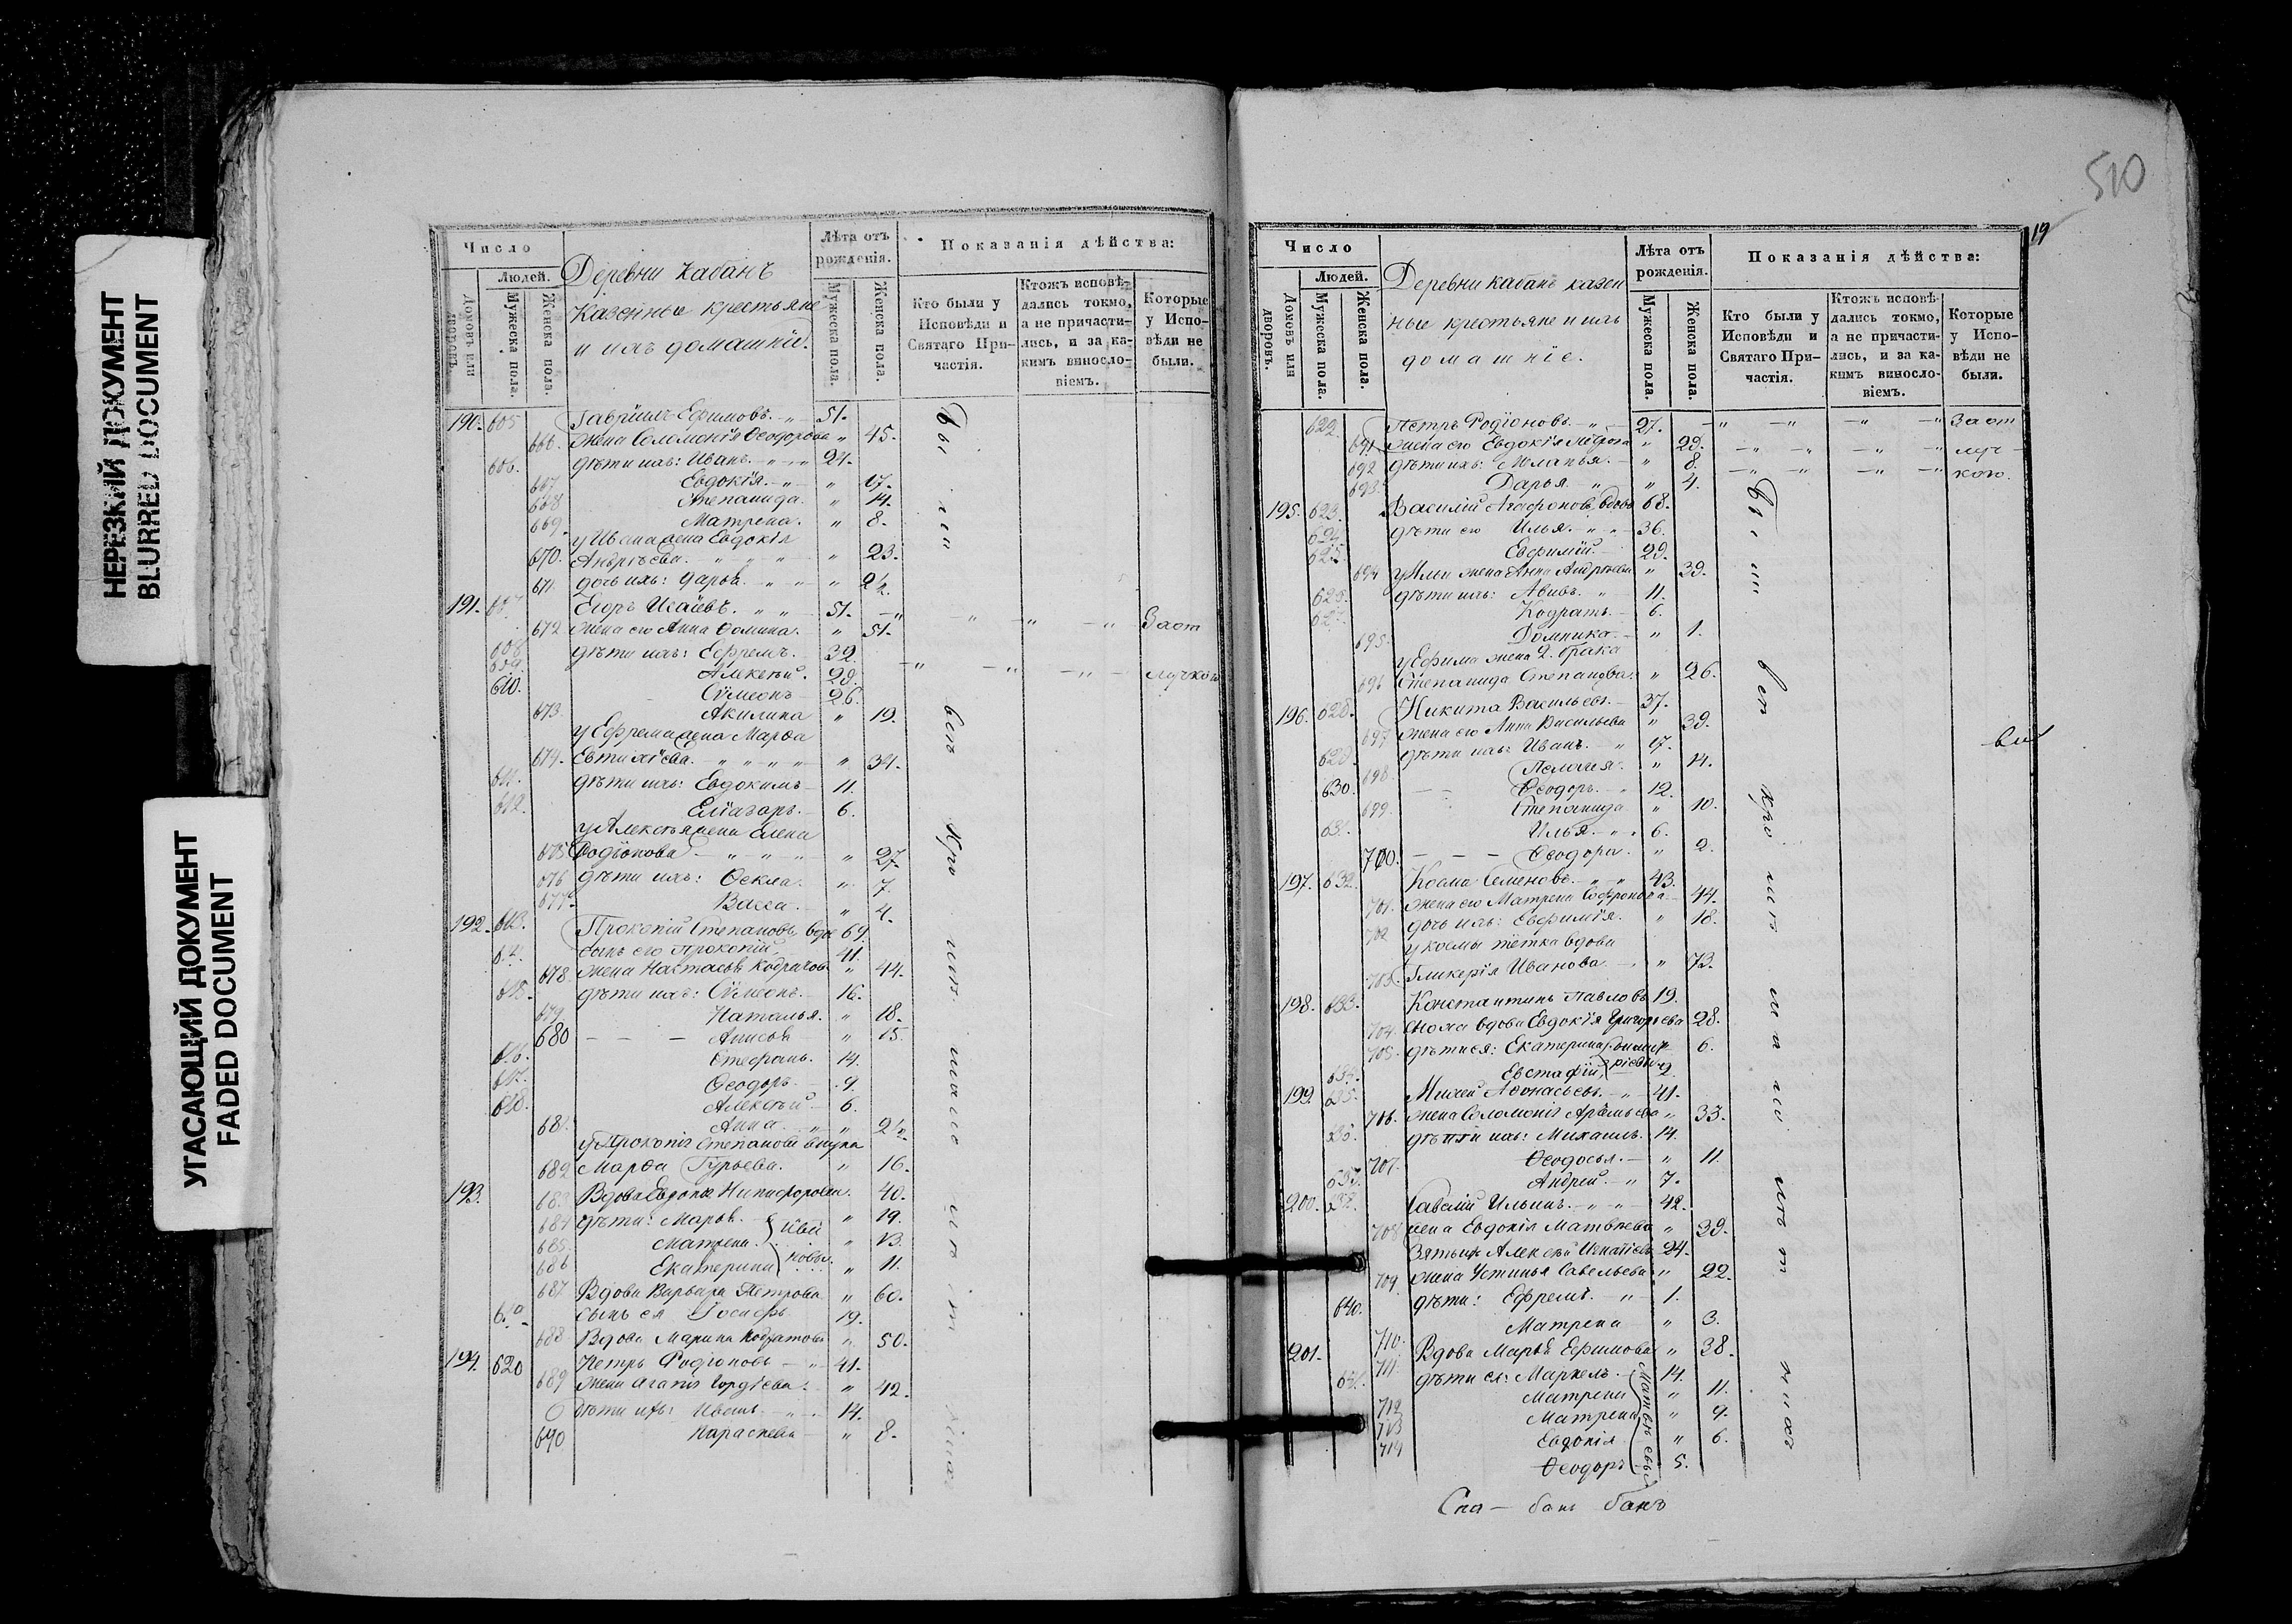 НЕРЕЗКИЙ ДОКУМЕНТ
BLURRED DOCUMENT
УГАСАЮЩИЙ ДОКУМЕНТ
FADED DOCUMENT
Число
Людей.
домовъ или дворовъ.
Мужеска пола.
Женска пола.
Деревни Кабанъ
Казенные крестьяне
и ихъ домашніи.
Лѣта отъ рожденія.
Мужеска пола.
Женска пола.
Показанія дѣйства:
Кто были у Исповѣди и Святаго Причастія.
Ктожъ исповѣдались токмо, а не причастились, и за какимъ винословіемъ.
Которые у Исповѣди не были.
190. 605 Гавріилъ Ефимовъ. 51.
666. жена Соломонія Ѳеодорова 45.
606. дѣти ихъ: Иванъ. 24.
667 Евдокія. 17.
668 Степанида. 14.
669. Матрена. 8.
у Ивана жена Евдокія
670. Андрѣева. 23.
671 дочь ихъ: Дарья. 2½.
191. 607 Егоръ Исаевъ. 51. За от
672 жена его Анна Ѳомина. 51.
608 дѣти ихъ: Ефремъ. 32.
609. Алексѣй. 29. лучкою
610. Сѵмеонъ 26.
673. Акилина 19.
у Ефрема жена Марѳа
674. Евтихіева. 34.
611. дѣти ихъ: Евдокимъ 11.
612. Еліазаръ. 6.
у Алексѣя жена Елена
675 Родіонова 27.
676 дѣти ихъ: Ѳекла. 7.
677. Васса. 4.
192. 613. Прокопій Степановъ, вдов 69.
614. сынъ его Прокопій, 41.
678 жена Настасья Кодратова 44.
615. дѣти ихъ: Сѵмеонъ. 16.
679 Наталья. 18.
680 Анисья 15.
616. Стефанъ. 14.
617. Ѳеодоръ. 9.
618. Алексѣй 6.
681. Анна. 2½.
у Прокопія Степанова внука
682 Марѳа Гурьева. 16.
193. 683 Вдова Евдокія Никифорова. 40.
684 дѣти: Марья. 19.
685. Матрена. 13.
686 Екатерина 11.
687 Вдова Варвара Петрова 60.
619 сынъ ея Іосифъ 19.
688 Вдова Марина Кодратова 50.
194. 620 Петръ Родіоновъ 41.
689 жена Агапія Гордіева. 42.
дѣти ихъ: Иванъ. 14.
690 Параскева 8.
510
19
Число
Людей.
домовъ или дворовъ.
Мужеска пола.
Женска пола.
Деревни Кабанъ казен
ные крестьяне и ихъ
домашніе.
Лѣта отъ рожденія.
Мужеска пола.
Женска пола.
Показанія дѣйства:
Кто были у Исповѣди и Святаго Причастія.
Ктожъ исповѣдались токмо, а не причастились, и за какимъ винословіемъ.
Которые у Исповѣди не были.
622. Петръ Родіоновъ. 27. За от
691 жена его Евдокія 29. луч
692 дѣти ихъ: Меланья. 8. кою.
693. Дарья 4.
195. 623. Василій Агафоновъ, вдовъ 68.
624. дѣти его Илья. 36.
625. Евфимій. 29.
694 у Ильи жена Анна Андрѣева 39.
626. дѣти ихъ: Авивъ. 11.
627. Кодратъ. 6.
695. Домника. 1.
у Ефима жена 2. брака
696 Степанида Степанова. 26.
196. 628. Никита Васильевъ. 37.
697 жена его Анна Васильева 39.
629. дѣти ихъ: Иванъ. 17.
698. Пелагея. 14.
630. Ѳеодоръ. 12.
699. Степанида 10.
631. Илья. 6.
700. Ѳеодора. 2.
197. 632. Косма Семеновъ. 43.
701. жена его Матрена Софронова 44.
702 дочь ихъ: Евфимія. 18.
у Космы тетка вдова
703. Гликерія Иванова 73.
198. 633. Константинъ Павловъ 19.
704. сноха вдова Евдокія Григорьева 28.
705. дѣти ея: Екатерина 6.
634. Евстафій 9.
199. 635. Михей Аѳонасьевъ. 41.
706. жена Соломонія Артемьева 33.
дѣти ихъ: Михаилъ. 14.
707. Ѳеодосья. 11.
Андрей. 7.
200. Савелій Ильинъ. 42.
708 жена Евдокія Матвѣева 39.
Зять ихъ Алексѣй Игнатіевъ 24.
709. жена Устинья Савельева 22.
640. дѣти: Ефремъ. 1.
710. Матрена 3.
201. 711. Вдова Марья Ефимова 38.
641. дѣти ея: Маркелъ. 14.
712 Матрена 11.
713 Матрена 9.
714 Евдокія 6.
Ѳеодоръ 5.
Матвѣевы
Спа— банъ банъ